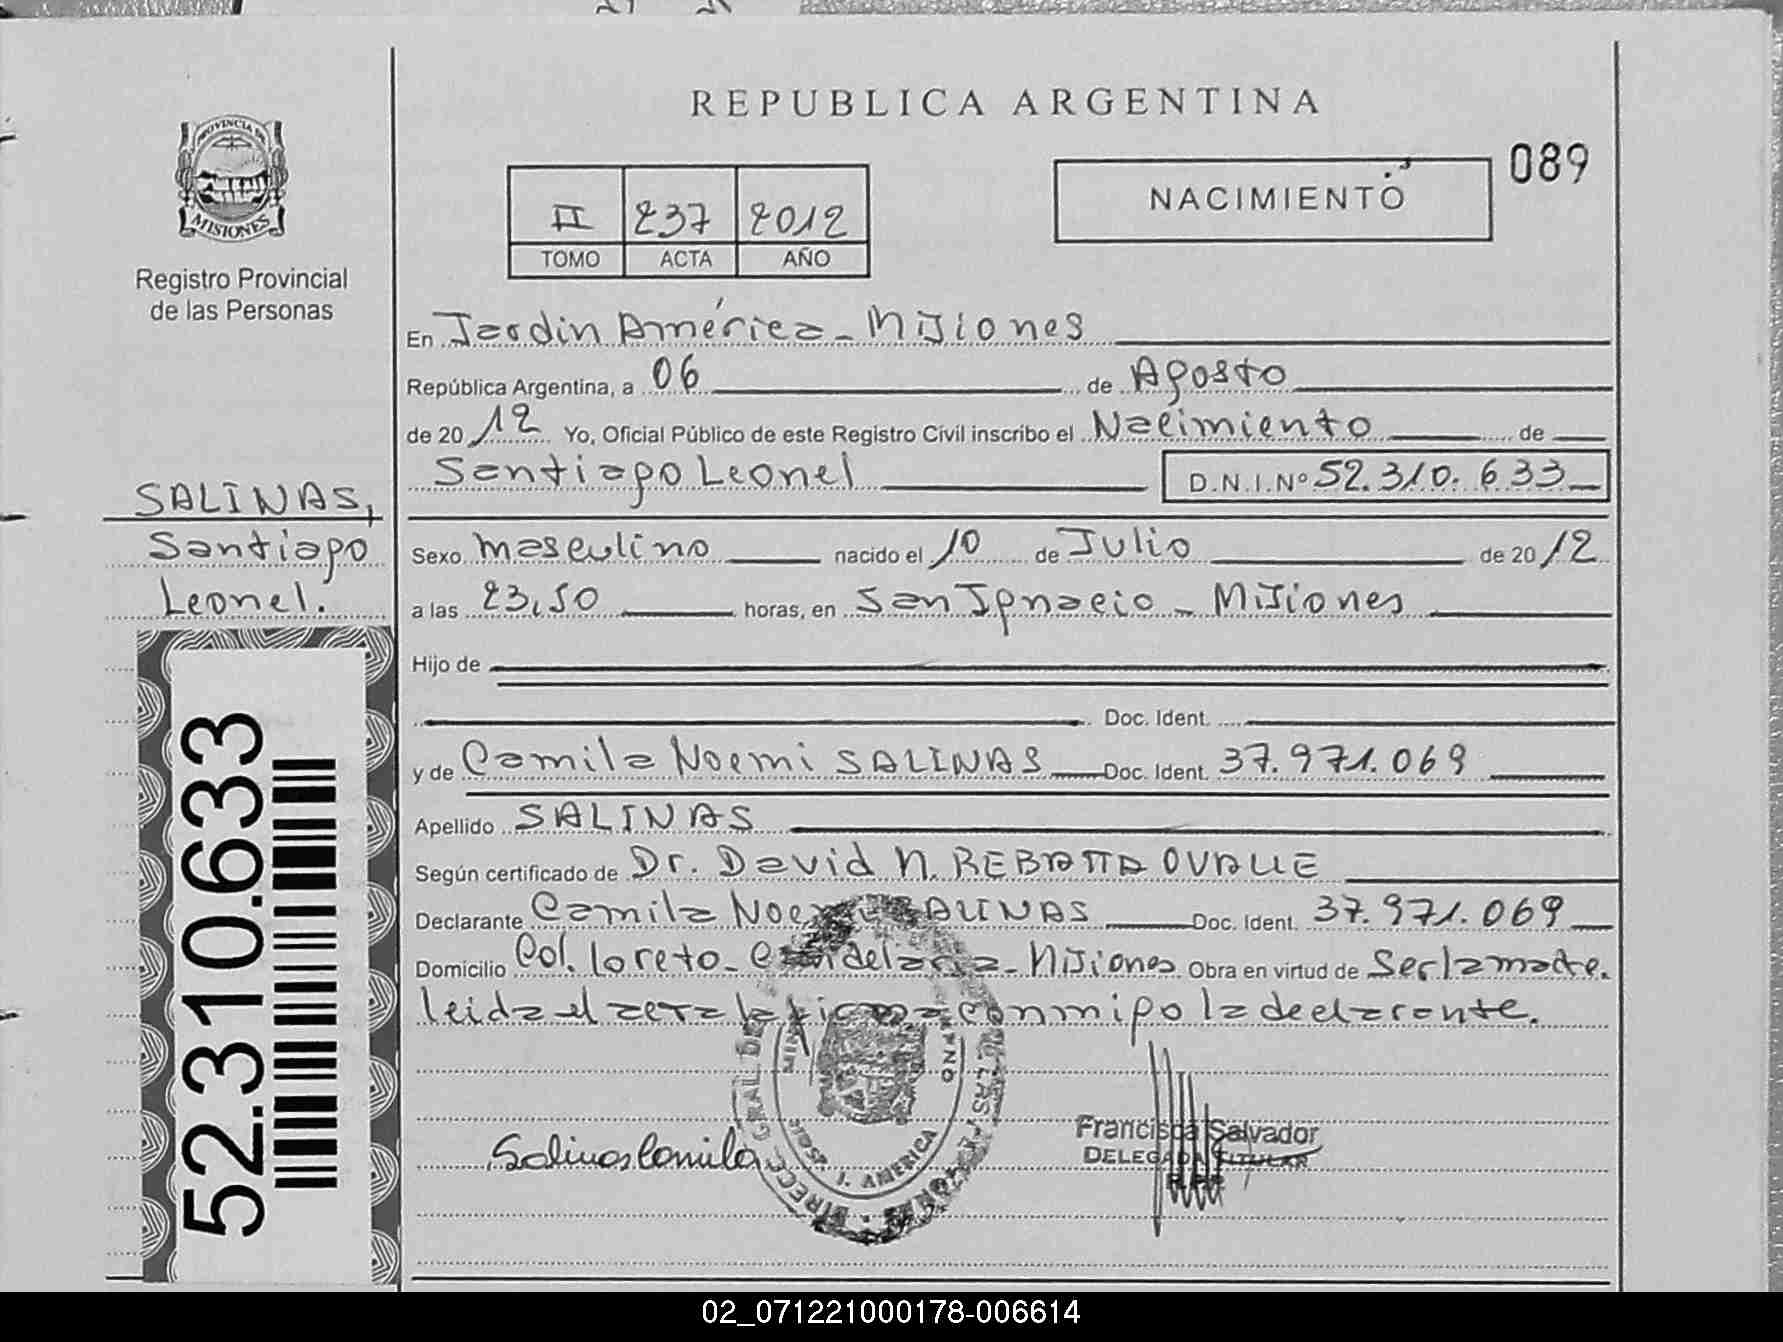 REPUBLICA ARGENTINA
089
PROVINCIA DE
MISIONES
Registro Provincial
de las Personas
II 237 2012
TOMO ACTA AÑO
NACIMIENTO
En Jardin América - Misiones
República Argentina, a 06 de Agosto
de 2012 Yo, Oficial Público de este Registro Civil inscribo el Nacimiento de
Santiago Leonel D.N.I.Nº 52.310.633
SALINAS,
Santiago
Leonel.
Sexo masculino nacido el 10 de Julio de 2012
a las 23,50 horas, en San Ignacio - Misiones
Hijo de
Doc. Ident.
y de Camila Noemi SALINAS Doc. Ident. 37.971.069
Apellido SALINAS
Según certificado de Dr. David N. REBATTA OVALLE
Declarante Camila Noemi SALINAS Doc. Ident. 37.971.069
Domicilio Col. Loreto - Candelaria - Misiones Obra en virtud de Ser la madre.
leida el acta la firma conmigo la declarante.
52.310.633
Salinas Camila
DIRECC. GRAL. DE
J. AMERICA
Francisca Salvador
DELEGADA TITULAR
R.P.P.
02_071221000178-006614